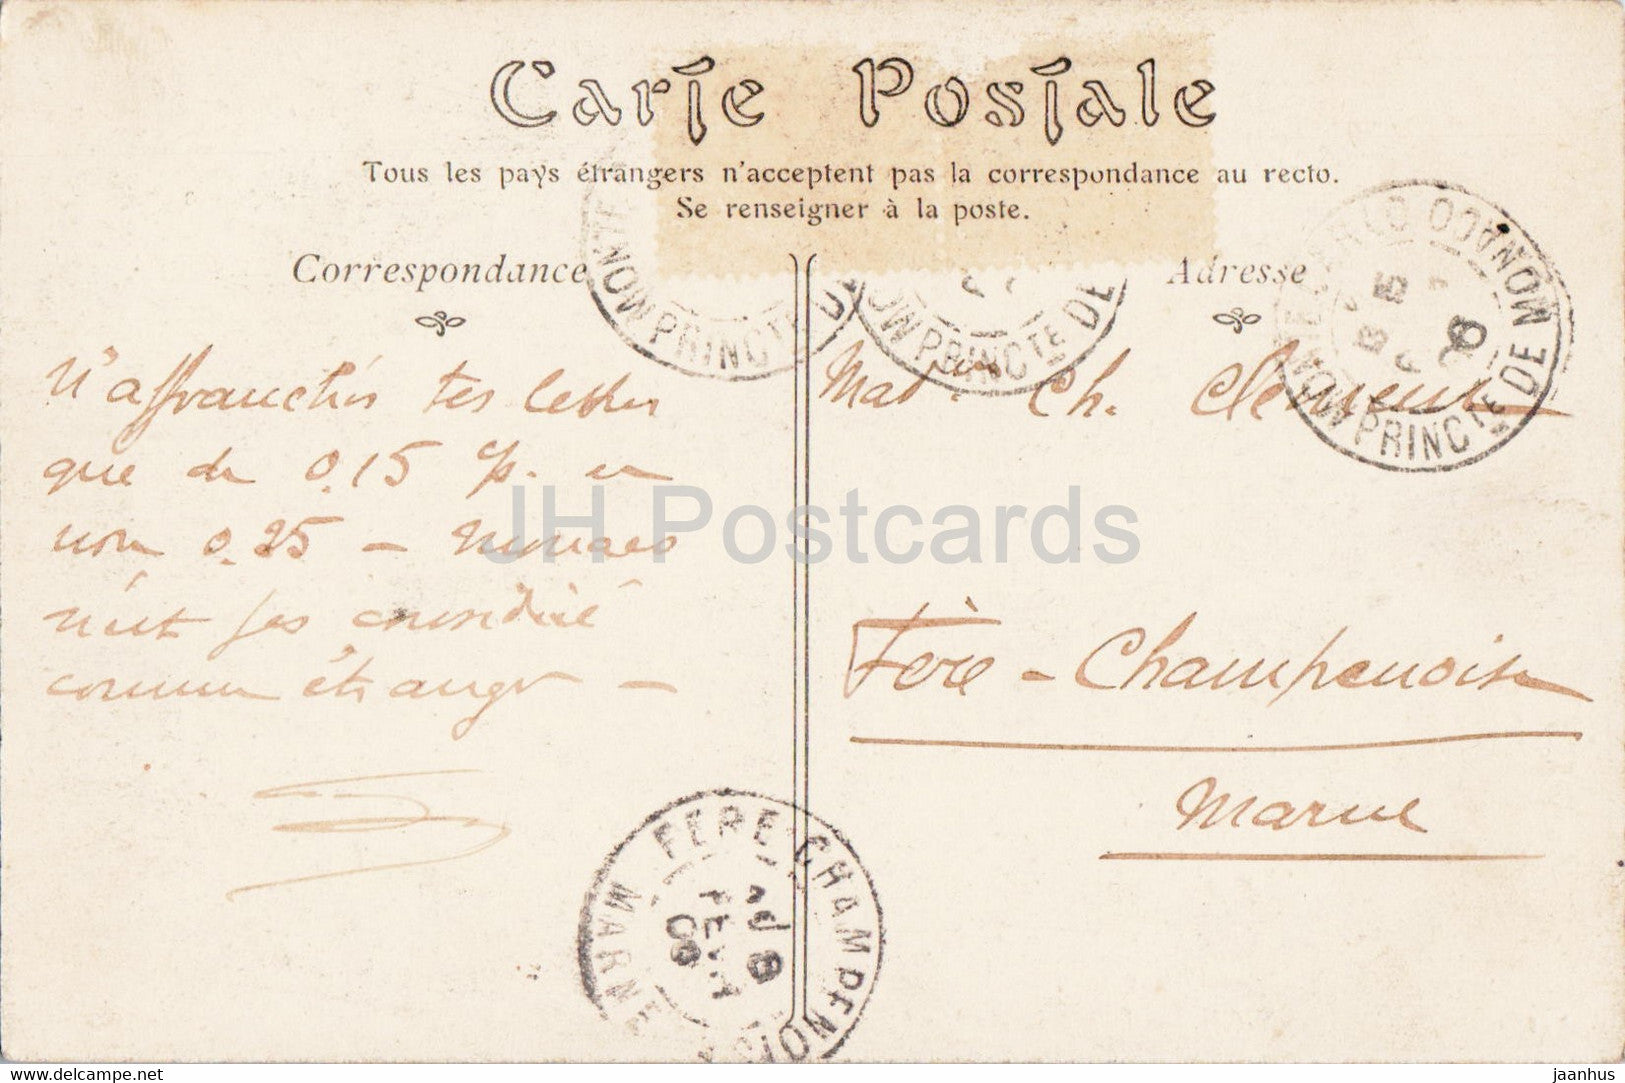 Carte Postale
Tous les pays étrangers n'acceptent pas la correspondance au recto.
Se renseigner à la poste.
Correspondance
N'affranchis tes lettres
que de 0.15 c/. en
non 0.25 – Monaco
n'est pas considéré
comme étranger –
Adresse
Mad. Ch. Clement
Fère-Champenoise
Marne
MONACO
PRINCTE DE MON
PRINCTE DE
MON PRINCTE DE
FERE-CHAMPENOIS
MARNE
8
FEVR
09
JH Postcards
www.delcampe.net
jaanhus